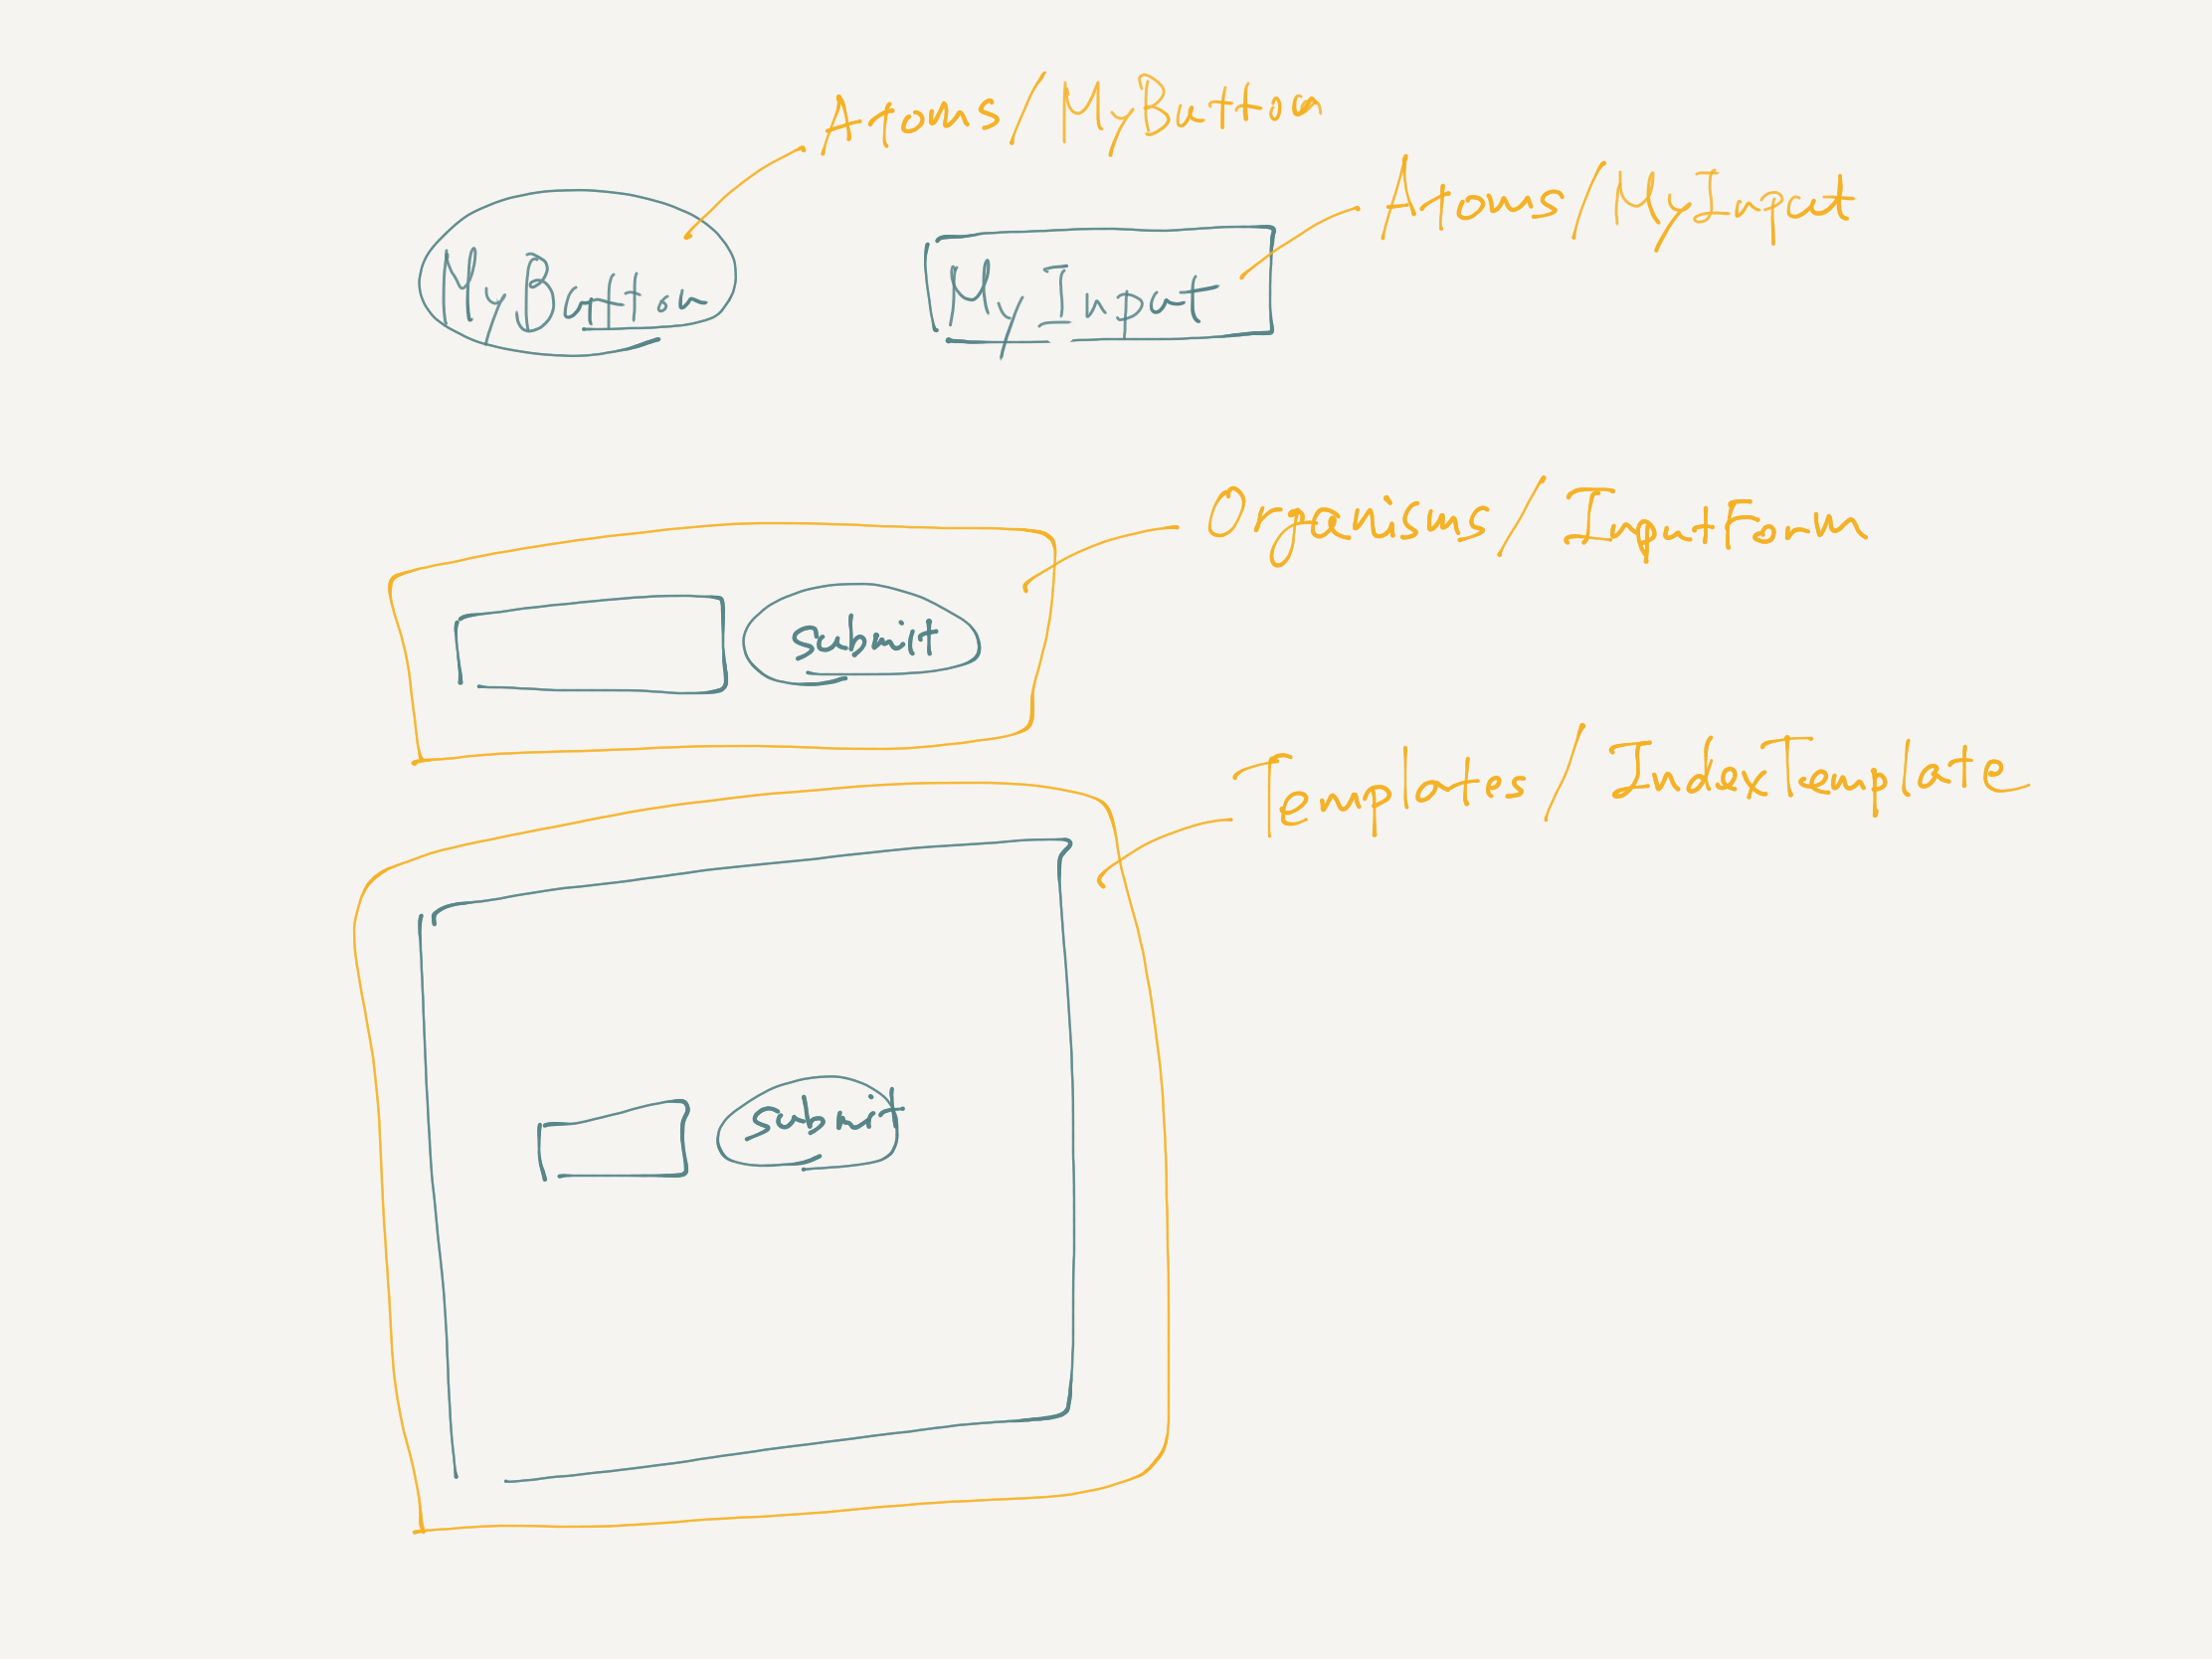 Atoms/MyButton
Atoms/MyInput
MyButton
MyInput
Organisms/InputForm
Submit
Templates/IndexTemplate
Submit